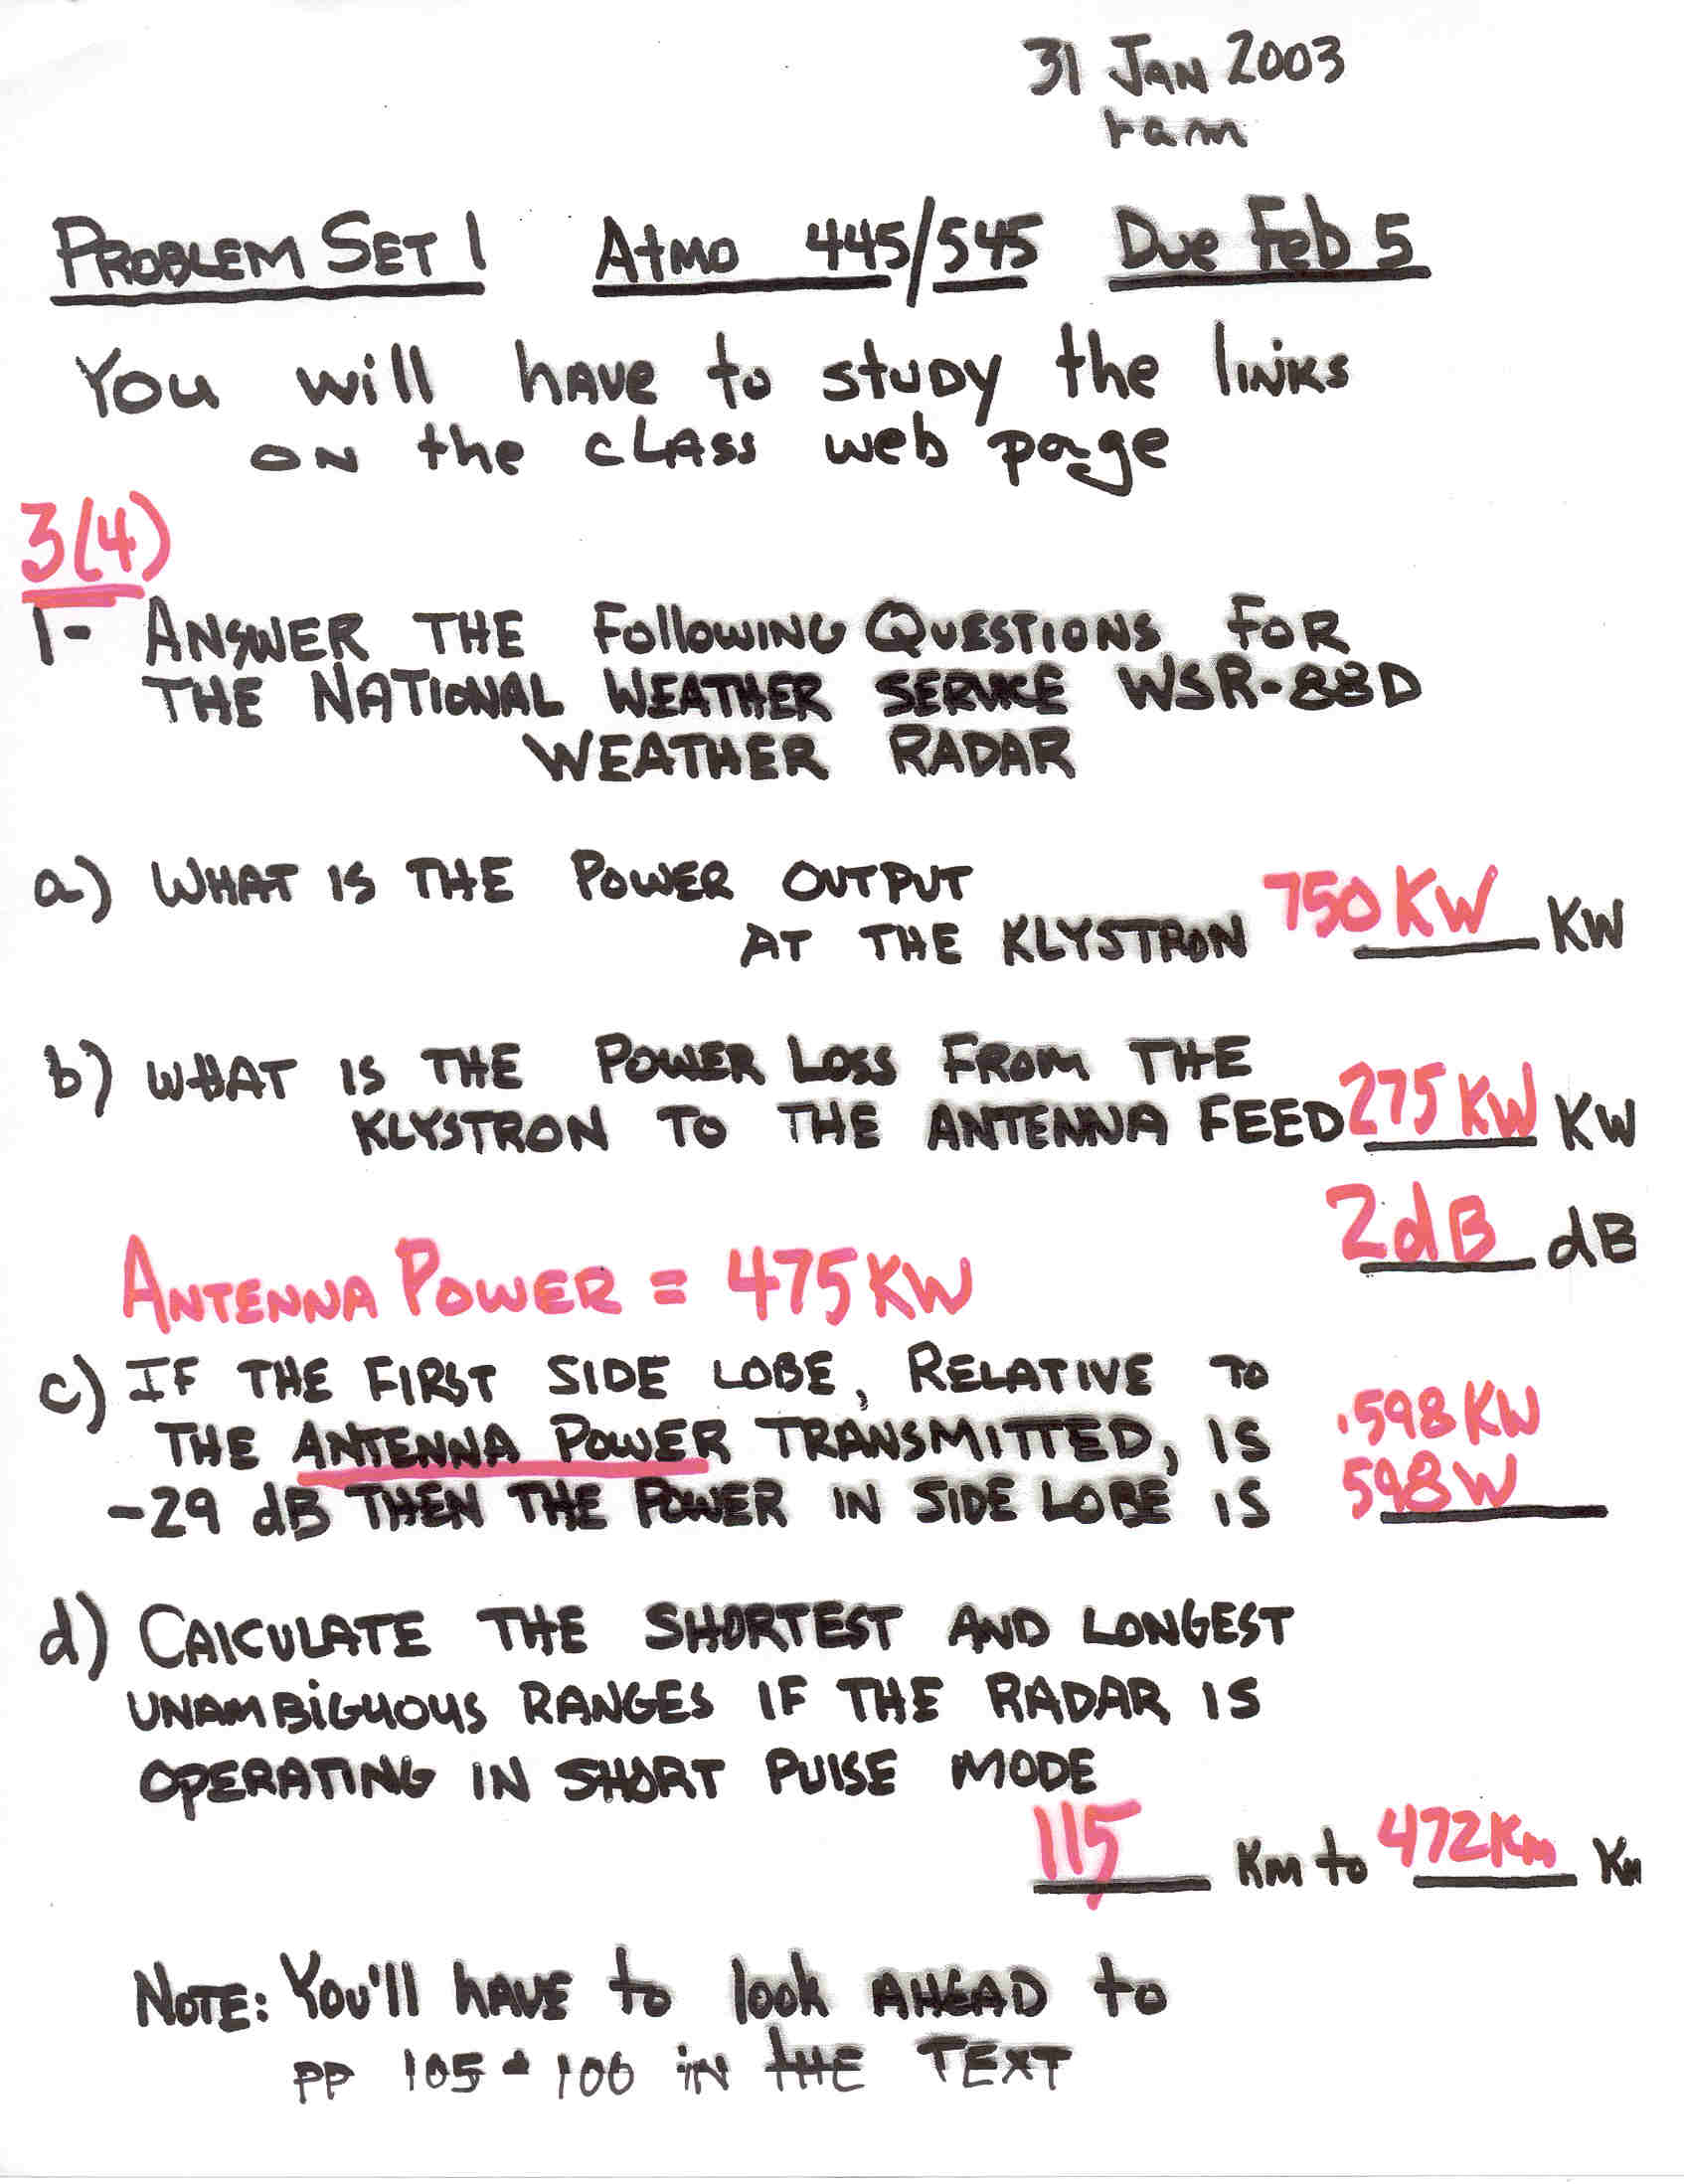 31 JAN 2003
ram
PROBLEM SET 1 Atmo 445/545 Due Feb 5
You will have to study the links
on the class web page
3(4)
1- ANSWER THE Following QUESTIONS FOR
THE NATIONAL WEATHER SERVICE WSR-88D
WEATHER RADAR
a) WHAT IS THE POWER OUTPUT
AT THE KLYSTRON 750 KW KW
b) WHAT IS THE POWER LOSS FROM THE
KLYSTRON TO THE ANTENNA FEED 275 KW KW
2dB dB
ANTENNA POWER = 475 KW
c) IF THE FIRST SIDE LOBE, RELATIVE TO
THE ANTENNA POWER TRANSMITTED, IS
-29 dB THEN THE POWER IN SIDE LOBE IS
.598 KW
598 W
d) CALCULATE THE SHORTEST AND LONGEST
UNAMBIGUOUS RANGES IF THE RADAR IS
OPERATING IN SHORT PULSE MODE
115 Km to 472 Km Km
NOTE: You'll have to look AHEAD to
pp 105 & 106 in the TEXT